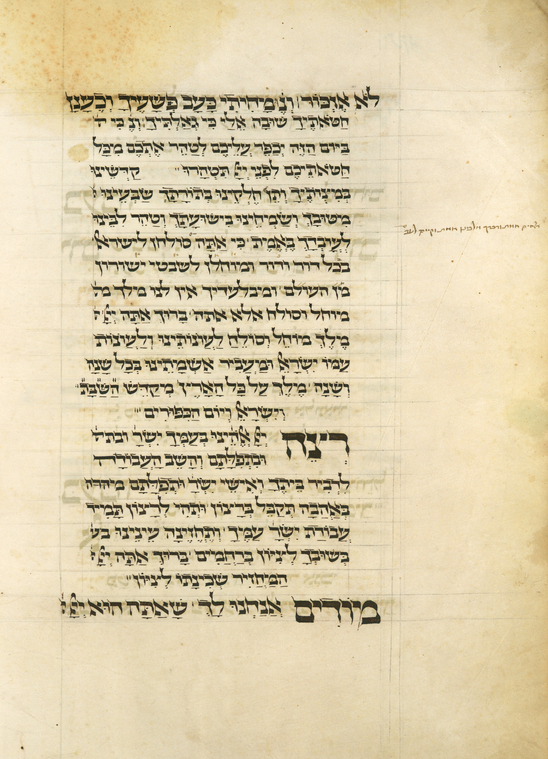 לא אזכור ונ׳ מחותי כעב פשעיך וכענן
חטאתיך שובה אלי כי גאלתיך ונ׳ כי
ביום הזה יכפר עליכם לטהר אתכם מכל
חטאתיכם לפני ייי תטהרו קדשינו
במצותיך ותן חלקינו בתורתך שבעינו
מטובך ושמחינו בישועתך וטהר לבינו
לעובדך באמת כי אתה סולחן לישראל
בכל דור ודור ומוחלן לשבטי ישורון
ומבלעדיך אין לנו מלך
מוחל וסולח אלא אתה ברוך אתה ייי
מלך מוחל וסולח לעונותינו ולעונות
עמו ישראל ומעביר אשמתינו בכל שנה
ושנה מלך על כל הארץ מקדש השבת
וישראל ויום הכפורים
רצה ייי אלהינו בעמך ישר׳
ובתפלתם והשב העבודה
לדביר ביתך ואישי ישר׳ ותפלתם
באהבה תקבל ברצון ותהי לרצון תמיד
עבודת ישר׳ עמך ותחזינה עינינו
בשובך לציון ברחמים ברוך אתה ייי
המחזיר שכינתו לציון
מודים אנחנו לך שאתה הוא ייי